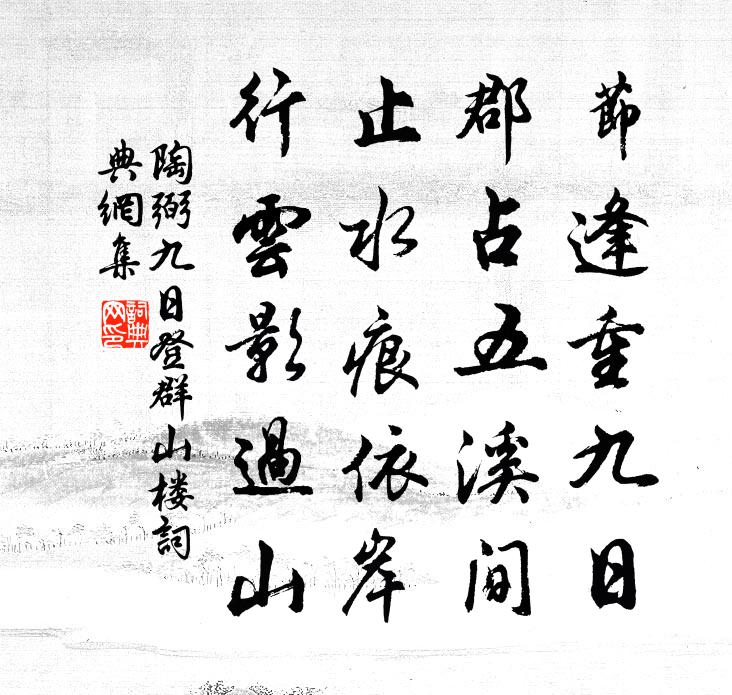 節逢重九日
郡占五溪间
止水痕依岸
行雲影過山
陶弼九日登群山楼詞
典網集
詞典
网印